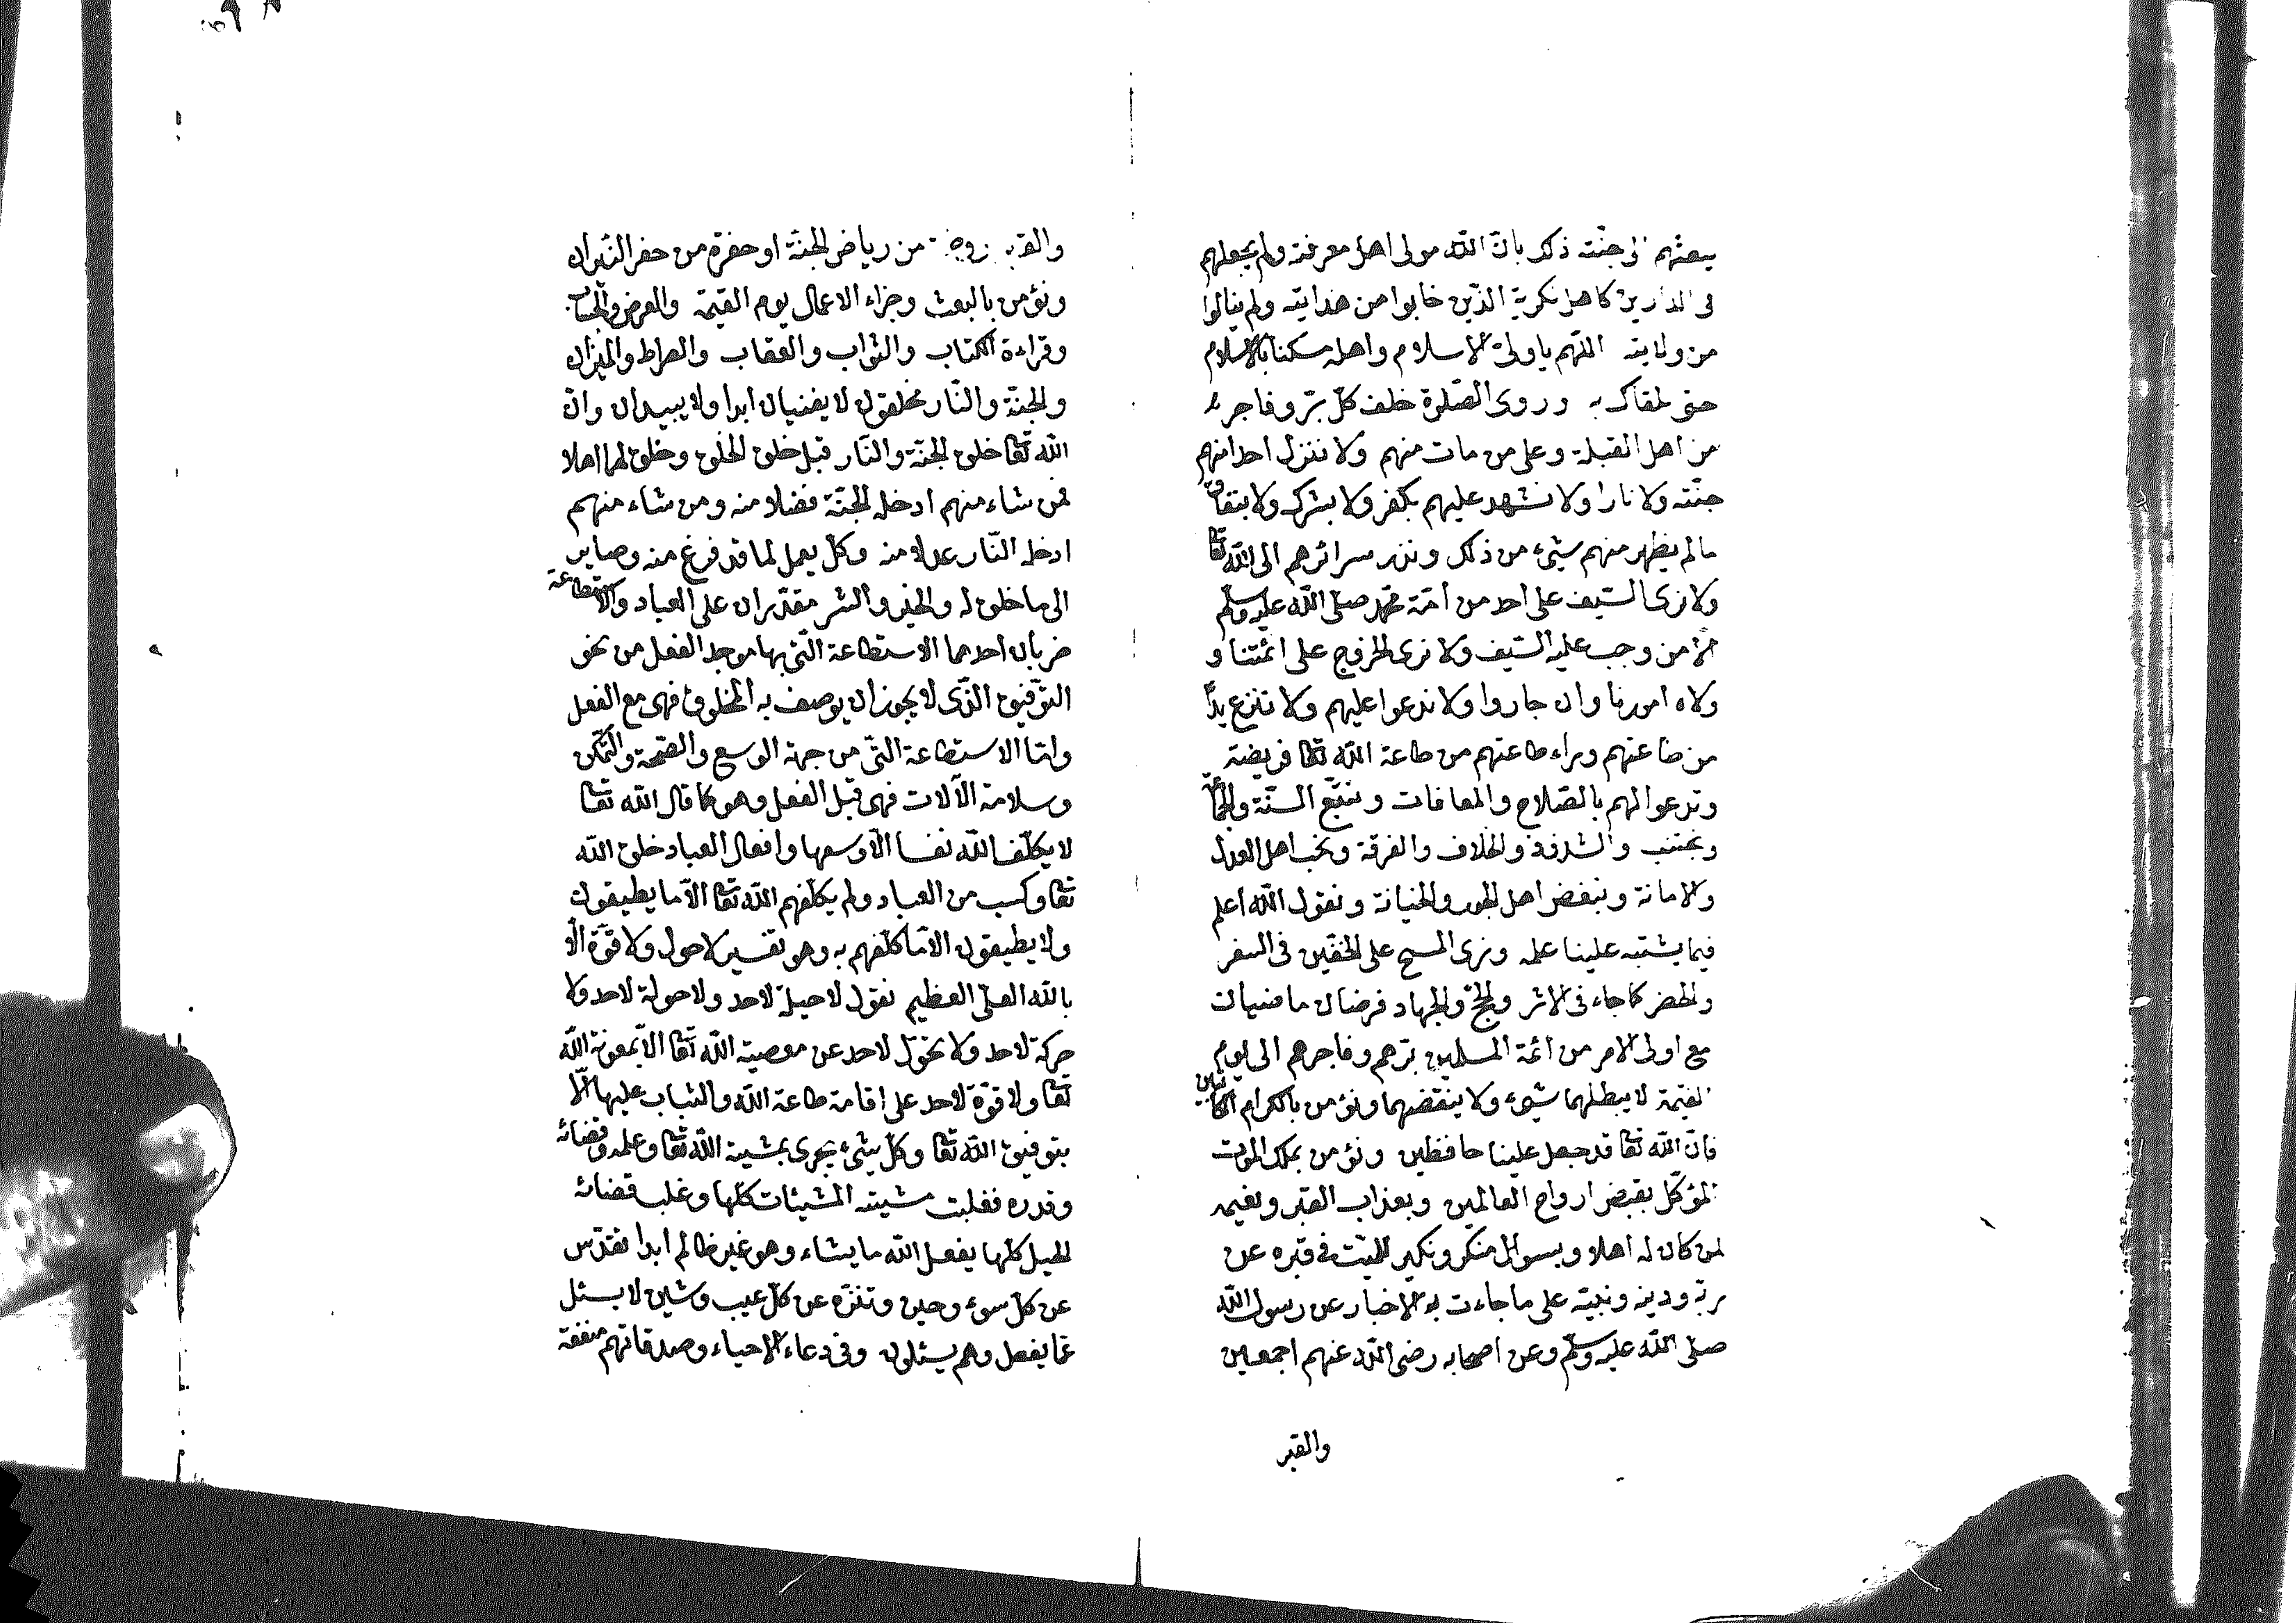 يبعثهم الى جنته ذلك بان الله مولى اهل معرفته ولم يجعلهم
فى الدارين كاهل نكرته الذين خابوا من هدايته ولم ينالوا
من ولايته اللهم يا ولى الاسلام واهله مسكنا بالاسلام
حتى نلقاك به ونرى الصلوة خلف كل بر وفاجر
من اهل القبلة وعلى من مات منهم ولا ننزل احدا منهم
جنته ولا نارا ولا نشهد عليهم بكفر ولا بشرك ولا بنفاق
ما لم يظهر منهم شىء من ذلك ونذر سرائرهم الى الله تعا
ولا نرى السيف على احد من امة محمد صلى الله عليه وسلم
الا من وجب عليه السيف ولا نرى الخروج على ائمتنا و
ولاه امورنا وان جاروا ولا ندعوا عليهم ولا ننزع يدا
من طاعتهم ونراء طاعتهم من طاعة الله تعا فريضة
وندعوا لهم بالصلاح والمعافات ونتبع السنة والجماعة
ونجتنب والشذوذ والخلاف والفرقة ونحب اهل العدل
والامانة ونبغض اهل الجور والخيانة ونقول الله اعلم
فيما يشتبه علينا علمه ونرى المسح على الخفين فى السفر
والحضر كما جاء فى الاثر والحج والجهاد فرضان ماضيان
مع اولى الامر من ائمة المسلمين برهم وفاجرهم الى يوم
القيمة لا يبطلهما شىء ولا ينقضهما ونؤمن بالكرام الكاتبين
فان الله تعا قد جعل علينا حافظين ونؤمن بملك الموت
المؤكل بقبض ارواح العالمين وبعذاب القبر ونعيمه
لمن كان له اهلا وبسوال منكر ونكير للميت فى قبره عن
ربه ودينه ونبيه على ما جاءت به الاخبار عن رسول الله
صلى الله عليه وسلم وعن اصحابه رضى الله عنهم اجمعين
والقبر
والقبر روضة من رياض الجنة او حفرة من حفر النيران
ونؤمن بالبعث وجزاء الاعمال يوم القيمة والعرض والحساب
وقراءة الكتاب والثواب والعقاب والصراط والميزان
والجنة والنار مخلوقان لا يفنيان ابدا ولا يبيدان وان
الله تعا خلق الجنة والنار قبل خلق الخلق وخلق لهما اهلا
فمن شاء منهم ادخله الجنة فضلا منه ومن شاء منهم
ادخله النار عدلا منه وكل يعمل لما قد فرغ منه وصاير
الى ما خلق له والخير والشر مقدران على العباد والاستطاعة
ضربان احدهما الاستطاعة التى بها موجد الفعل من نحو
التوفيق الذى لا يجوز ان يوصف به المخلوق فهى مع الفعل
واما الاستطاعة التى من جهة الوسع والصحة والتمكن
وسلامة الآلات فهى قبل الفعل وهو كما قال الله تعا
لا يكلف الله نفسا الا وسعها وافعال العباد خلق الله
تعا وكسب من العباد ولم يكلفهم الله تعا الا ما يطيقون
ولا يطيقون الا ما كلفهم به وهو تفسير لا حول ولا قوة الا
بالله العلى العظيم نقول لا حيلة لاحد ولا حولة لاحد ولا
حركة لاحد ولا تحول لاحد عن معصية الله تعا الا بمعونة الله
تعا ولا قوة لاحد على اقامة طاعة الله والثبات عليها الا
بتوفيق الله تعا وكل شىء يجرى بمشية الله تعا وعلمه وقضائه
وقدره فغلبت مشيته المشيئات كلها وغلب قضائه
الحيل كلها يفعل الله ما يشاء وهو غير ظالم ابدا تقدس
عن كل سوء وحين وتنزه عن كل عيب وشين لا يسئل
عما يفعل وهم يسئلون وفى دعاء الاحياء وصدقاتهم منفعة